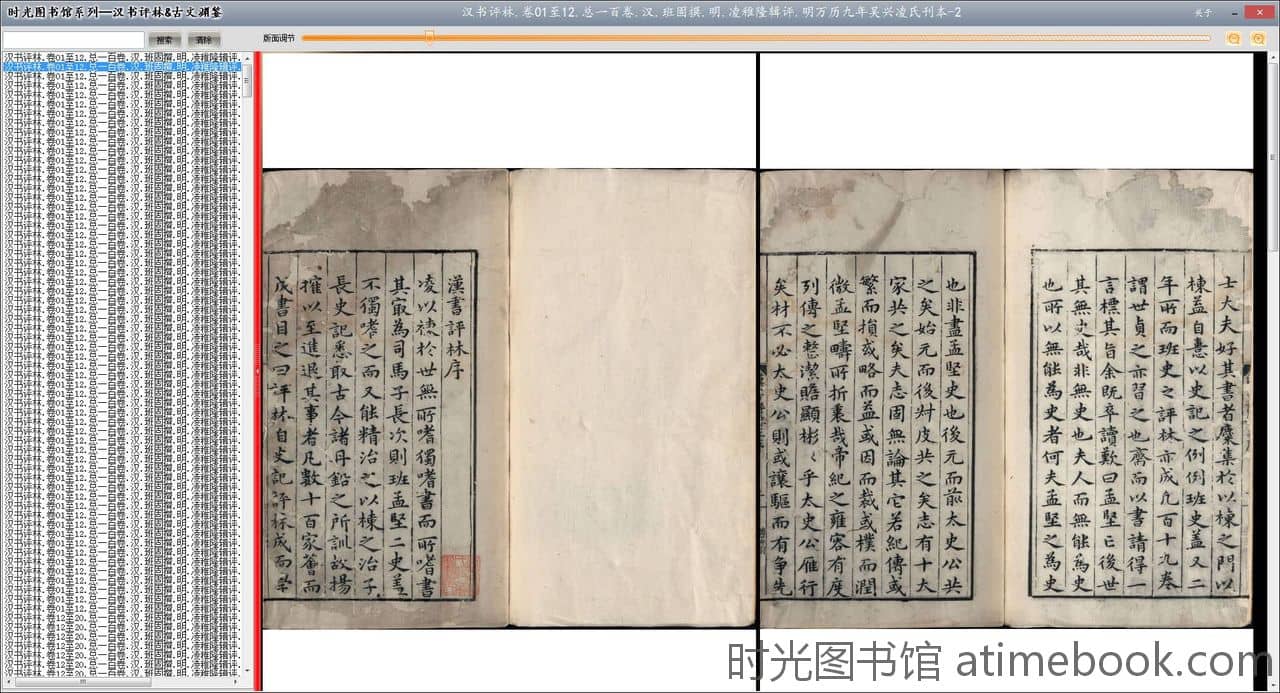 时光图书馆系列—汉书评林&古文渊鉴
汉书评林.卷01至12.总一百卷.汉.班固撰.明.凌稚隆辑评.明万历九年吴兴凌氏刊本-2
关于
搜索
清除
版面调节
汉书评林.卷01至12.总一百卷.汉.班固撰.明.凌稚隆辑评.
汉书评林.卷12至20.总一百卷.汉.班固撰.明.凌稚隆辑评.
漢書評林序
凌以棟於世無所嗜獨嗜書而所嗜書
其㝡為司馬子長次則班孟堅二史蓋
不獨嗜之而又能精治之以棟之治子
長史記悉取古今諸丹鉛之所訓故揚
搉以至進退其事者凡數十百家薈而
成書目之曰評林自史記評林成而學
士大夫好其書者麇集於以棟之門以
棟益自憙以史記之例例班史蓋又二
年所而班史之評林亦成凡百十九卷
謂世貞之亦習之也齎而以書請得一
言標其旨余既卒讀歎曰孟堅亡後世
其無史哉非無史也夫人而無能為史
也所以無能為史者何夫孟堅之為史
也非盡孟堅史也後元而前太史公共
之矣始元而後叔皮共之矣志有十大
家共之矣夫志固無論其它若紀傳或
繁而損或略而益或因而裁或樸而潤
微孟堅疇所折衷哉帝紀之雍容有度
列傳之整潔贍顯彬、乎太史公雁行
矣材不必太史公則或讓驅而有爭先
时光图书馆 atimebook.com